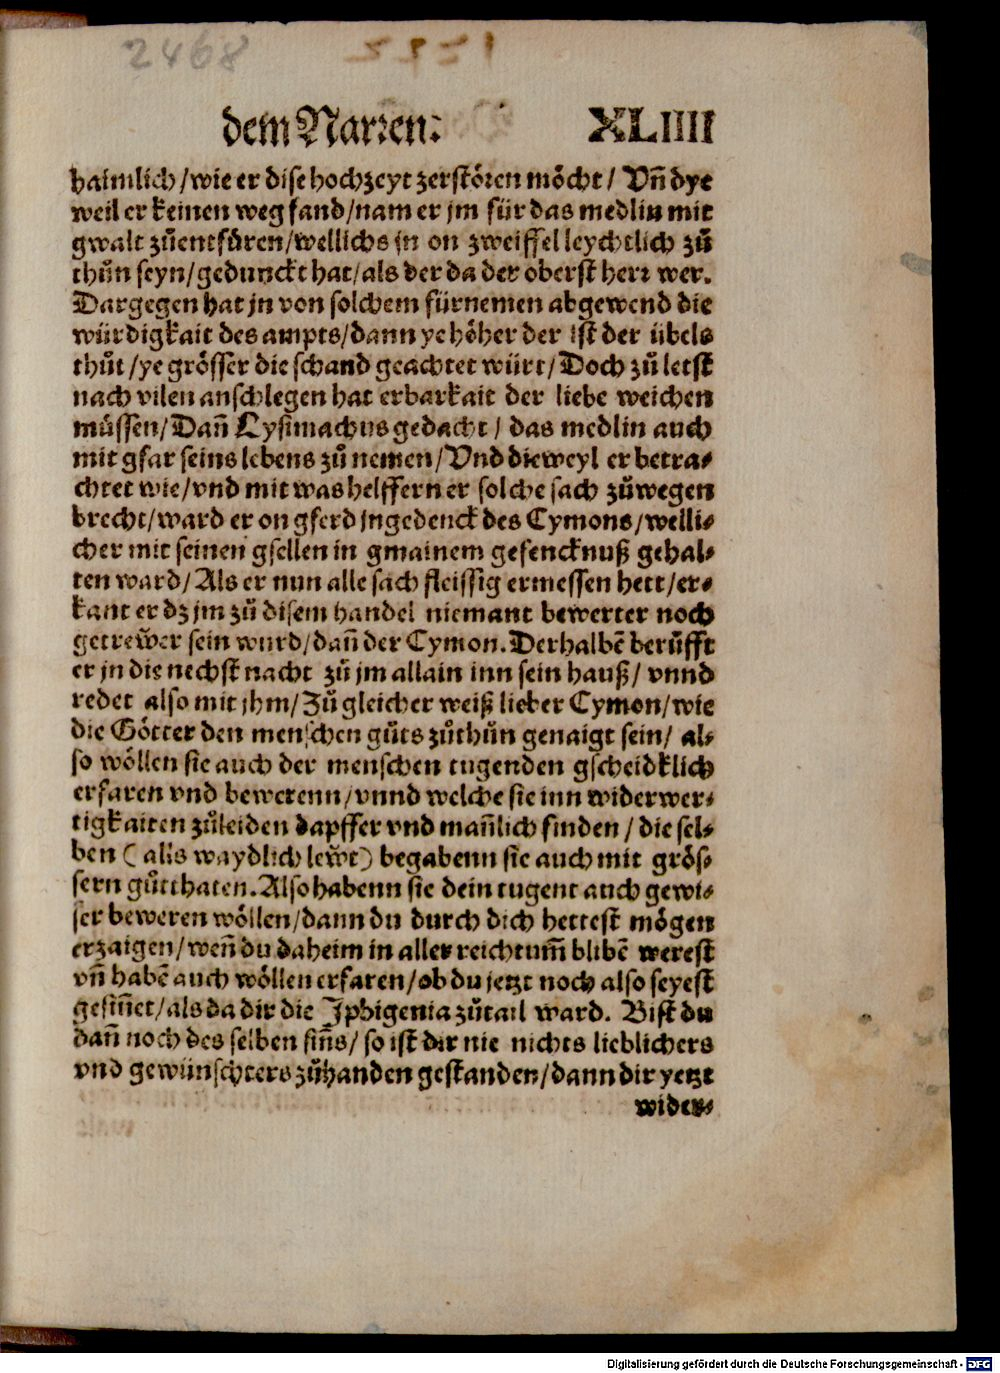 2468
dem Narren: XLIIII
haimlich/wie er dise hochzeyt zerstören möcht/ Vn̄ dye
weil er keinen weg fand/nam er jm für das medlin mit
gwalt zůentfüren/wellichs jn on zweiffel leychtlich zů
thůn seyn/gedunckt hat/als der da der oberst herr wer.
Dargegen hat jn von solchem fürnemen abgewend die
würdigkait des ampts/dann ye höher der ist der übels
thůt/ye grösser die schand geachtet würt/Doch zů letst
nach vilen anschlegen hat erbarkait der liebe weichen
müssen/Dan̄ Lysimachus gedacht/ das medlin auch
mit gfar seins lebens zů nemen/Vnd dieweyl er betra-
chtet wie/vnd mit was helffern er solche sach zůwegen
brecht/ward er on gferd jngedenck des Cymons/welli-
cher mit seinen gsellen in gmainem gefencknuß gehal-
ten ward/Als er nun alle sach fleissig ermessen hett/er-
kant er dz jm zů disem handel niemant bewerter noch
getrewer sein wurd/dan̄ der Cymon. Derhalbē berůfft
er jn die nechst nacht zů jm allain inn sein hauß/ vnnd
redet also mit jhm/Zů gleicher weiß lieber Cymon/wie
die Götter den menschen gůts zůthůn genaigt sein/ al-
so wöllen sie auch der menschen tugenden gscheidklich
erfaren vnd bewerenn/vnnd welche sie inn widerwer-
tigkaiten zůleiden dapffer vnd man̄lich finden/die sel-
ben (als waydlich lewt) begabenn sie auch mit grös-
sern gůtthaten. Also habenn sie dein tugent auch gewi-
ser beweren wöllen/dann du durch dich hettest mögen
erzaigen/wen̄ du daheim in aller reichtum̄ blibē werest
vn̄ habē auch wöllen erfaren/ob du jetzt noch also seyest
gesin̄et/als da dir die Iphigenia zůtail ward. Bist du
dan̄ noch des selben sin̄s/ so ist dir nie nichts lieblichers
vnd gewünschters zůhanden gestanden/dann dir yetzt
wider-
Digitalisierung gefördert durch die Deutsche Forschungsgemeinschaft - DFG